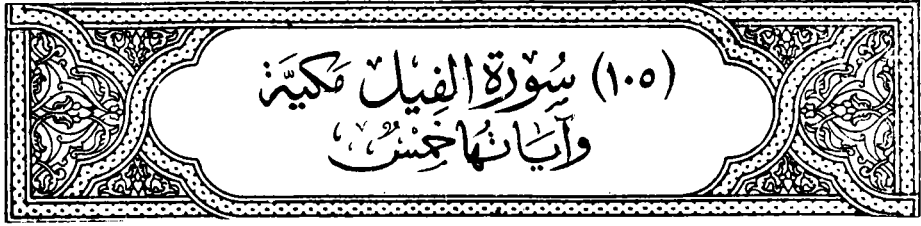 (١٠٥) سُورَةِ الفِيلِ مَكيَّة
وآيَاتُهَا خَمْسٌ